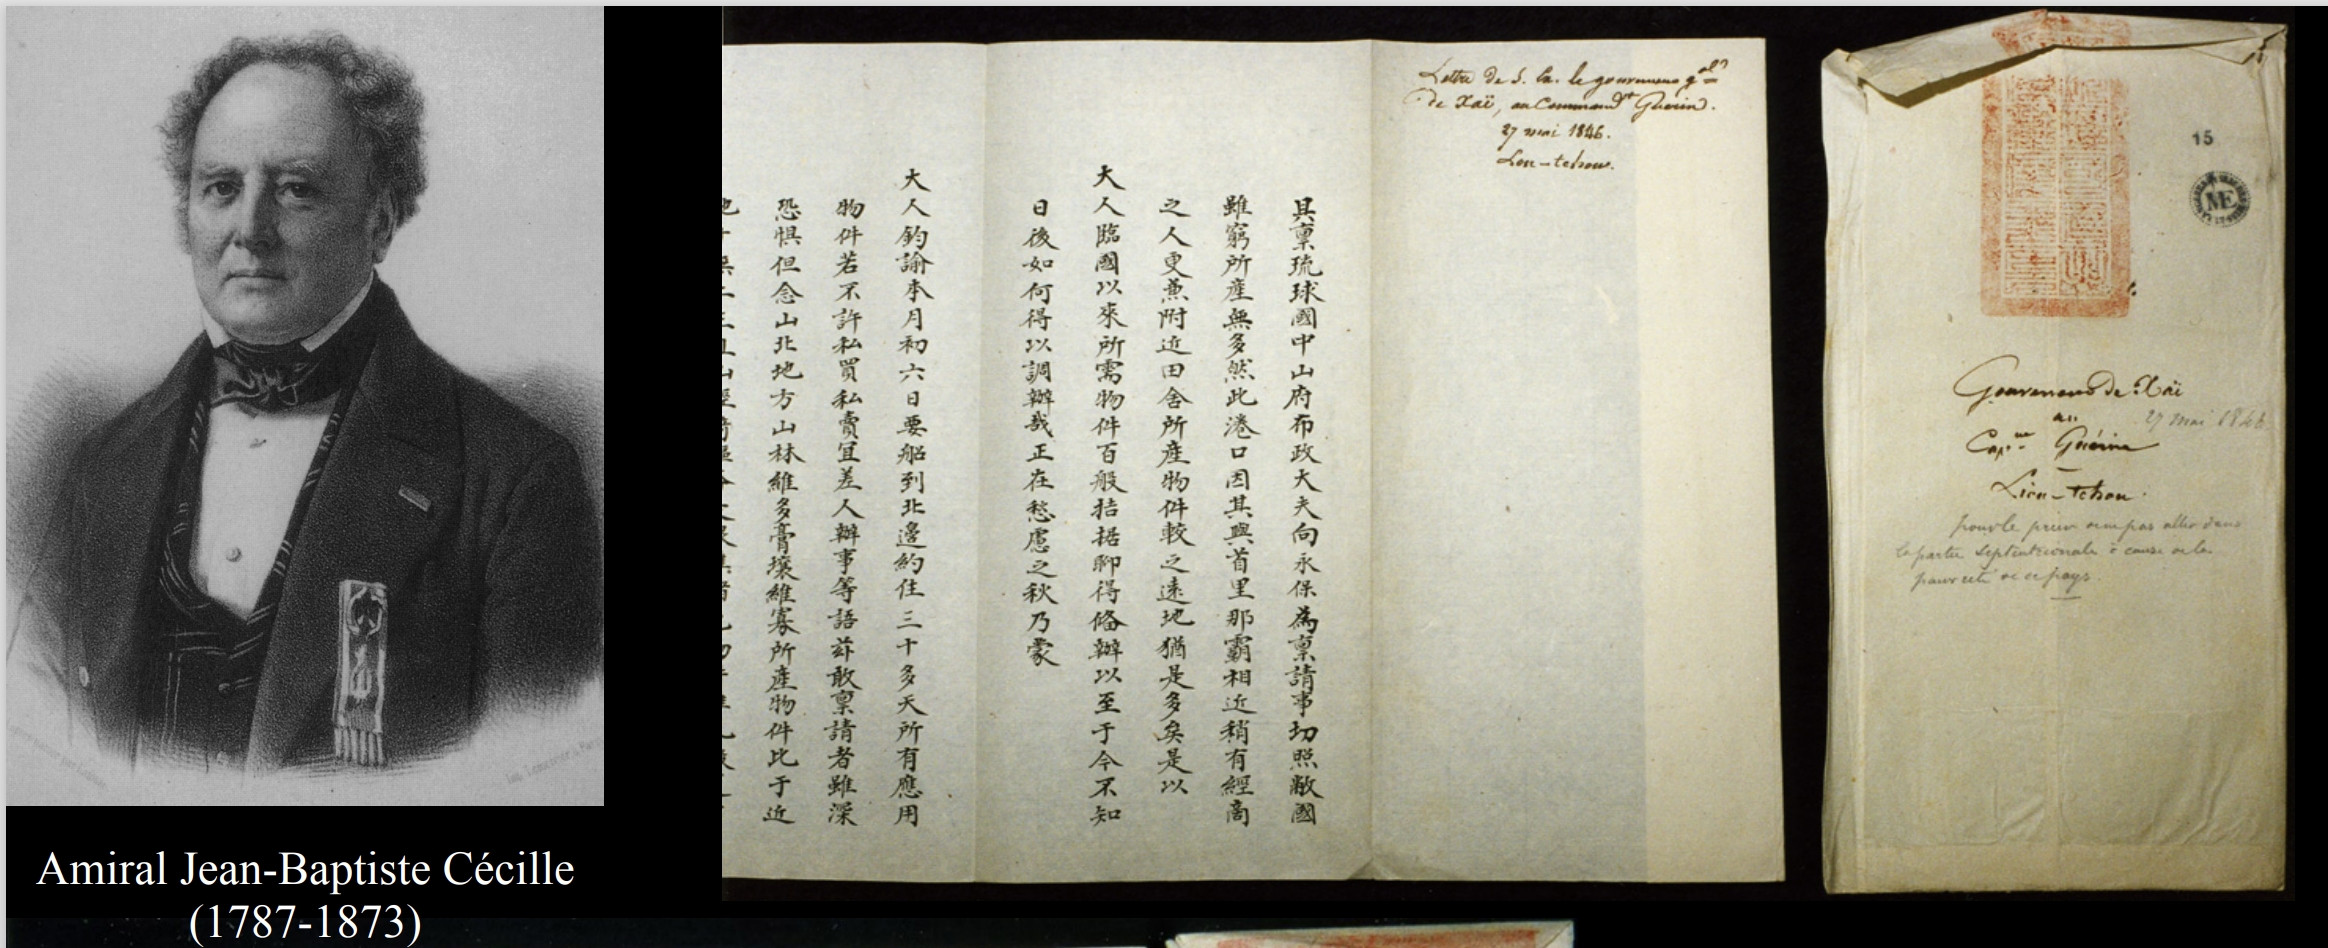 Amiral Jean-Baptiste Cécille
(1787-1873)
Lettre de S. Ex. le gouverneur gal
de Xaï, au Commandt Guérin.
27 mai 1846.
Lou-tchou.
具稟琉球國中山府布政大夫向永保為稟請事切照敝國
雖窮所產無多然此港口因其與首里那霸相近稍有經商
之人更兼附近田舍所產物件較之遠地猶是多矣是以
大人臨國以來所需物件百般拮据聊得俻辦以至于今不知
日後如何得以調辦哉正在愁慮之秋乃蒙
大人鈞諭本月初六日要船到北邊約住三十多天所有應用
物件若不許私買私賣宜差人辦事等語茲敢稟請者雖深
恐懼但念山北地方山林維多膏壤維寡所產物件比于近
15
ME
Gouverneur de Xaï
au
27 mai 1846
Capne Guérin
Lieu-tchou.
pour le prier de ne pas aller dans
la partie septentrionale à cause de la
pauvreté de ce pays.